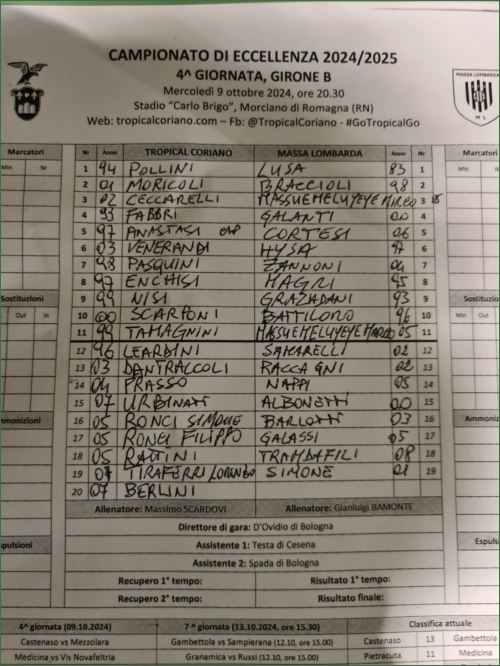 CAMPIONATO DI ECCELLENZA 2024/2025
4^ GIORNATA, GIRONE B
Mercoledì 9 ottobre 2024, ore 20.30
Stadio "Carlo Brigo", Morciano di Romagna (RN)
Web: tropicalcoriano.com – Fb: @TropicalCoriano - #GoTropicalGo
MASSA LOMBARDA
M L
Marcatori Nr Anno TROPICAL CORIANO MASSA LOMBARDA Anno Nr Marcatori
Min Nr 1 94 POLLINI LUSA 83 1 Min
2 01 MORICOLI BRACCIOLI 98 2
3 02 CECCARELLI MASSUEMELUYEYE MIRCO 3
4 93 FABBRI GALANTI 00 4
5 97 ANASTASI CAP CORTESI 06 5
6 03 VENERANDI HYSA 97 6
7 98 PASQUINI ZANNONI 04 7
8 97 ENCHISI MAGRI 95 8
Sostituzioni 9 99 NISI GRAZADANI 93 9 Sostituzioni
Out In 10 00 SCARPONI BATTILORO 96 10 Min Out
11 99 TAMAGNINI MASSUEMELUYEYE MARCO 05 11
12 96 LEARDINI SAMARELLI 02 12
13 03 DANTRACCOLI RACCAGNI 02 13
14 04 PRASSO NAPPI 05 14
15 07 URBINATI ALBONETTI 00 15
mmonizioni 16 05 RONCI SIMONE BARLOTTI 03 16 Ammoniz
17 05 RONCI FILIPPO GALASSI 05 17
18 05 RATTINI TRAMDAFILI 08 18
19 07 TIRAFERRI LORENZO SIMONE 01 19
20 07 BERLINI
Allenatore: Massimo SCARDOVI Allenatore: Gianluigi BAMONTE
Direttore di gara: D'Ovidio di Bologna
spulsioni Assistente 1: Testa di Cesena Espuls
Assistente 2: Spada di Bologna
Recupero 1° tempo: Risultato 1° tempo:
Recupero 2° tempo: Risultato finale:
4^ giornata (09.10.2024) 7^ giornata (13.10.2024, ore 15.30) Classifica attuale
Castenaso vs Mezzolara Gambettola vs Sampierana (12.10, ore 15.00) Castenaso 13 Gambettola
Medicina vs Vis Novafeltria Granamica vs Russi (12.10, ore 15.00) Pietracuta 11 Medicina